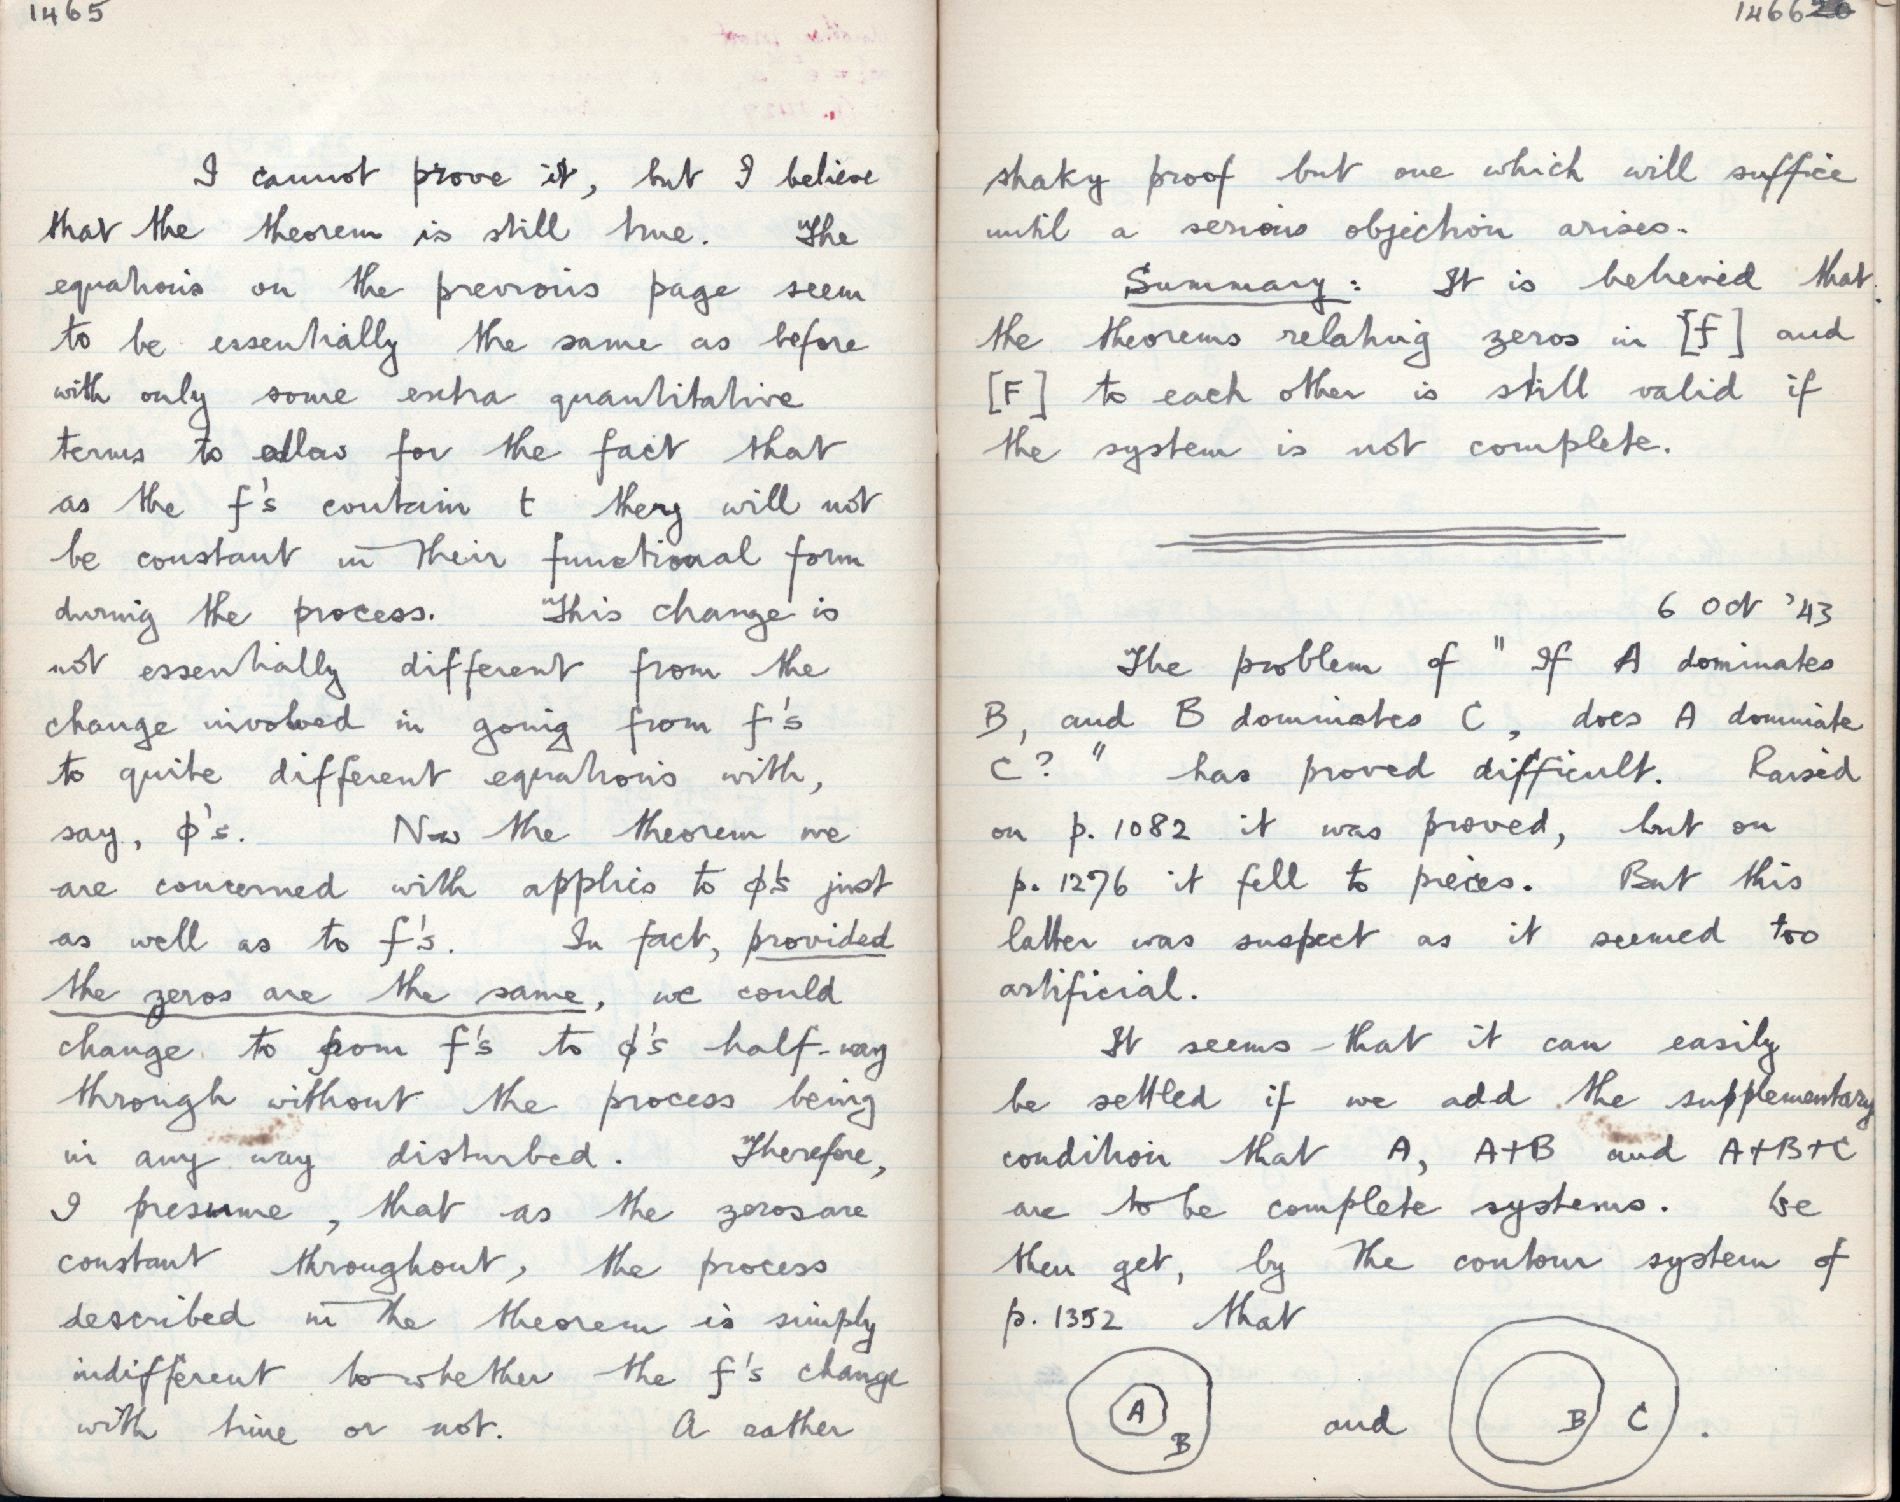 1465
I cannot prove it, but I believe
that the theorem is still true. The
equations on the previous page seem
to be essentially the same as before
with only some extra quantitative
terms to allow for the fact that
as the f's contain t they will not
be constant in their functional form
during the process. This change is
not essentially different from the
change involved in going from f's
to quite different equations with,
say, φ's. Now the theorem we
are concerned with applies to φ's just
as well as to f's. In fact, provided
the zeros are the same, we could
change to from f's to φ's half-way
through without the process being
in any way disturbed. Therefore,
I presume, that as the zeros are
constant throughout, the process
described in the theorem is simply
indifferent to whether the f's change
with time or not. A rather
1466
shaky proof but one which will suffice
until a serious objection arises.
Summary: It is believed that
the theorems relating zeros in [f] and
[F] to each other is still valid if
the system is not complete.
6 Oct '43
The problem of "If A dominates
B, and B dominates C, does A dominate
C?" has proved difficult. Raised
on p. 1082 it was proved, but on
p. 1276 it fell to pieces. But this
latter was suspect as it seemed too
artificial.
It seems that it can easily
be settled if we add the supplementary
condition that A, A+B and A+B+C
are to be complete systems. We
then get, by the contour system of
p. 1352 that
A B and B C .